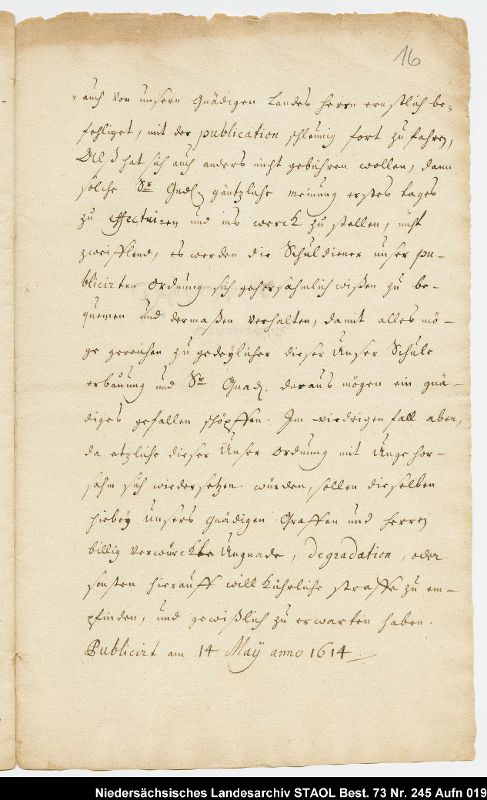 16
auch von unsern Gnädigen Landes herrn ernstlich be=
fehliget, mit der publication schleunig fort zu fahren,
hat sich auch anders nicht gebühren wollen, dann
solche Sr Gnd. gäntzliche meinung erstes tages
zu effectuiren und ins werck zu stellen, nicht
zweifflend, es werden die Schuldiener unser pu=
blicirten ordnung sich gehorsahmlich wißen zu be=
quemen und dermaßen verhalten, damit alles mö=
ge gereichen zu gedeylicher dieser Unser Schule
erbauung und Sr Gnad. daraus mögen ein gnä=
diges gefallen schöpffen. Im wiedrigen fall aber,
da etzliche dieser Unser ordnung mit Ungehor=
sahm sich wiedersetzen würden, sollen dieselben
hiebey Unsers Gnädigen Graffen und Herrn
billig verwürckte Ungnade, degradation, oder
sonsten hierauff willkührliche straffe zu em=
pfinden, und gewißlich zu erwarten haben.
Publicirt am 14 Maÿ anno 1614.
Niedersächsisches Landesarchiv STAOL Best. 73 Nr. 245 Aufn 019